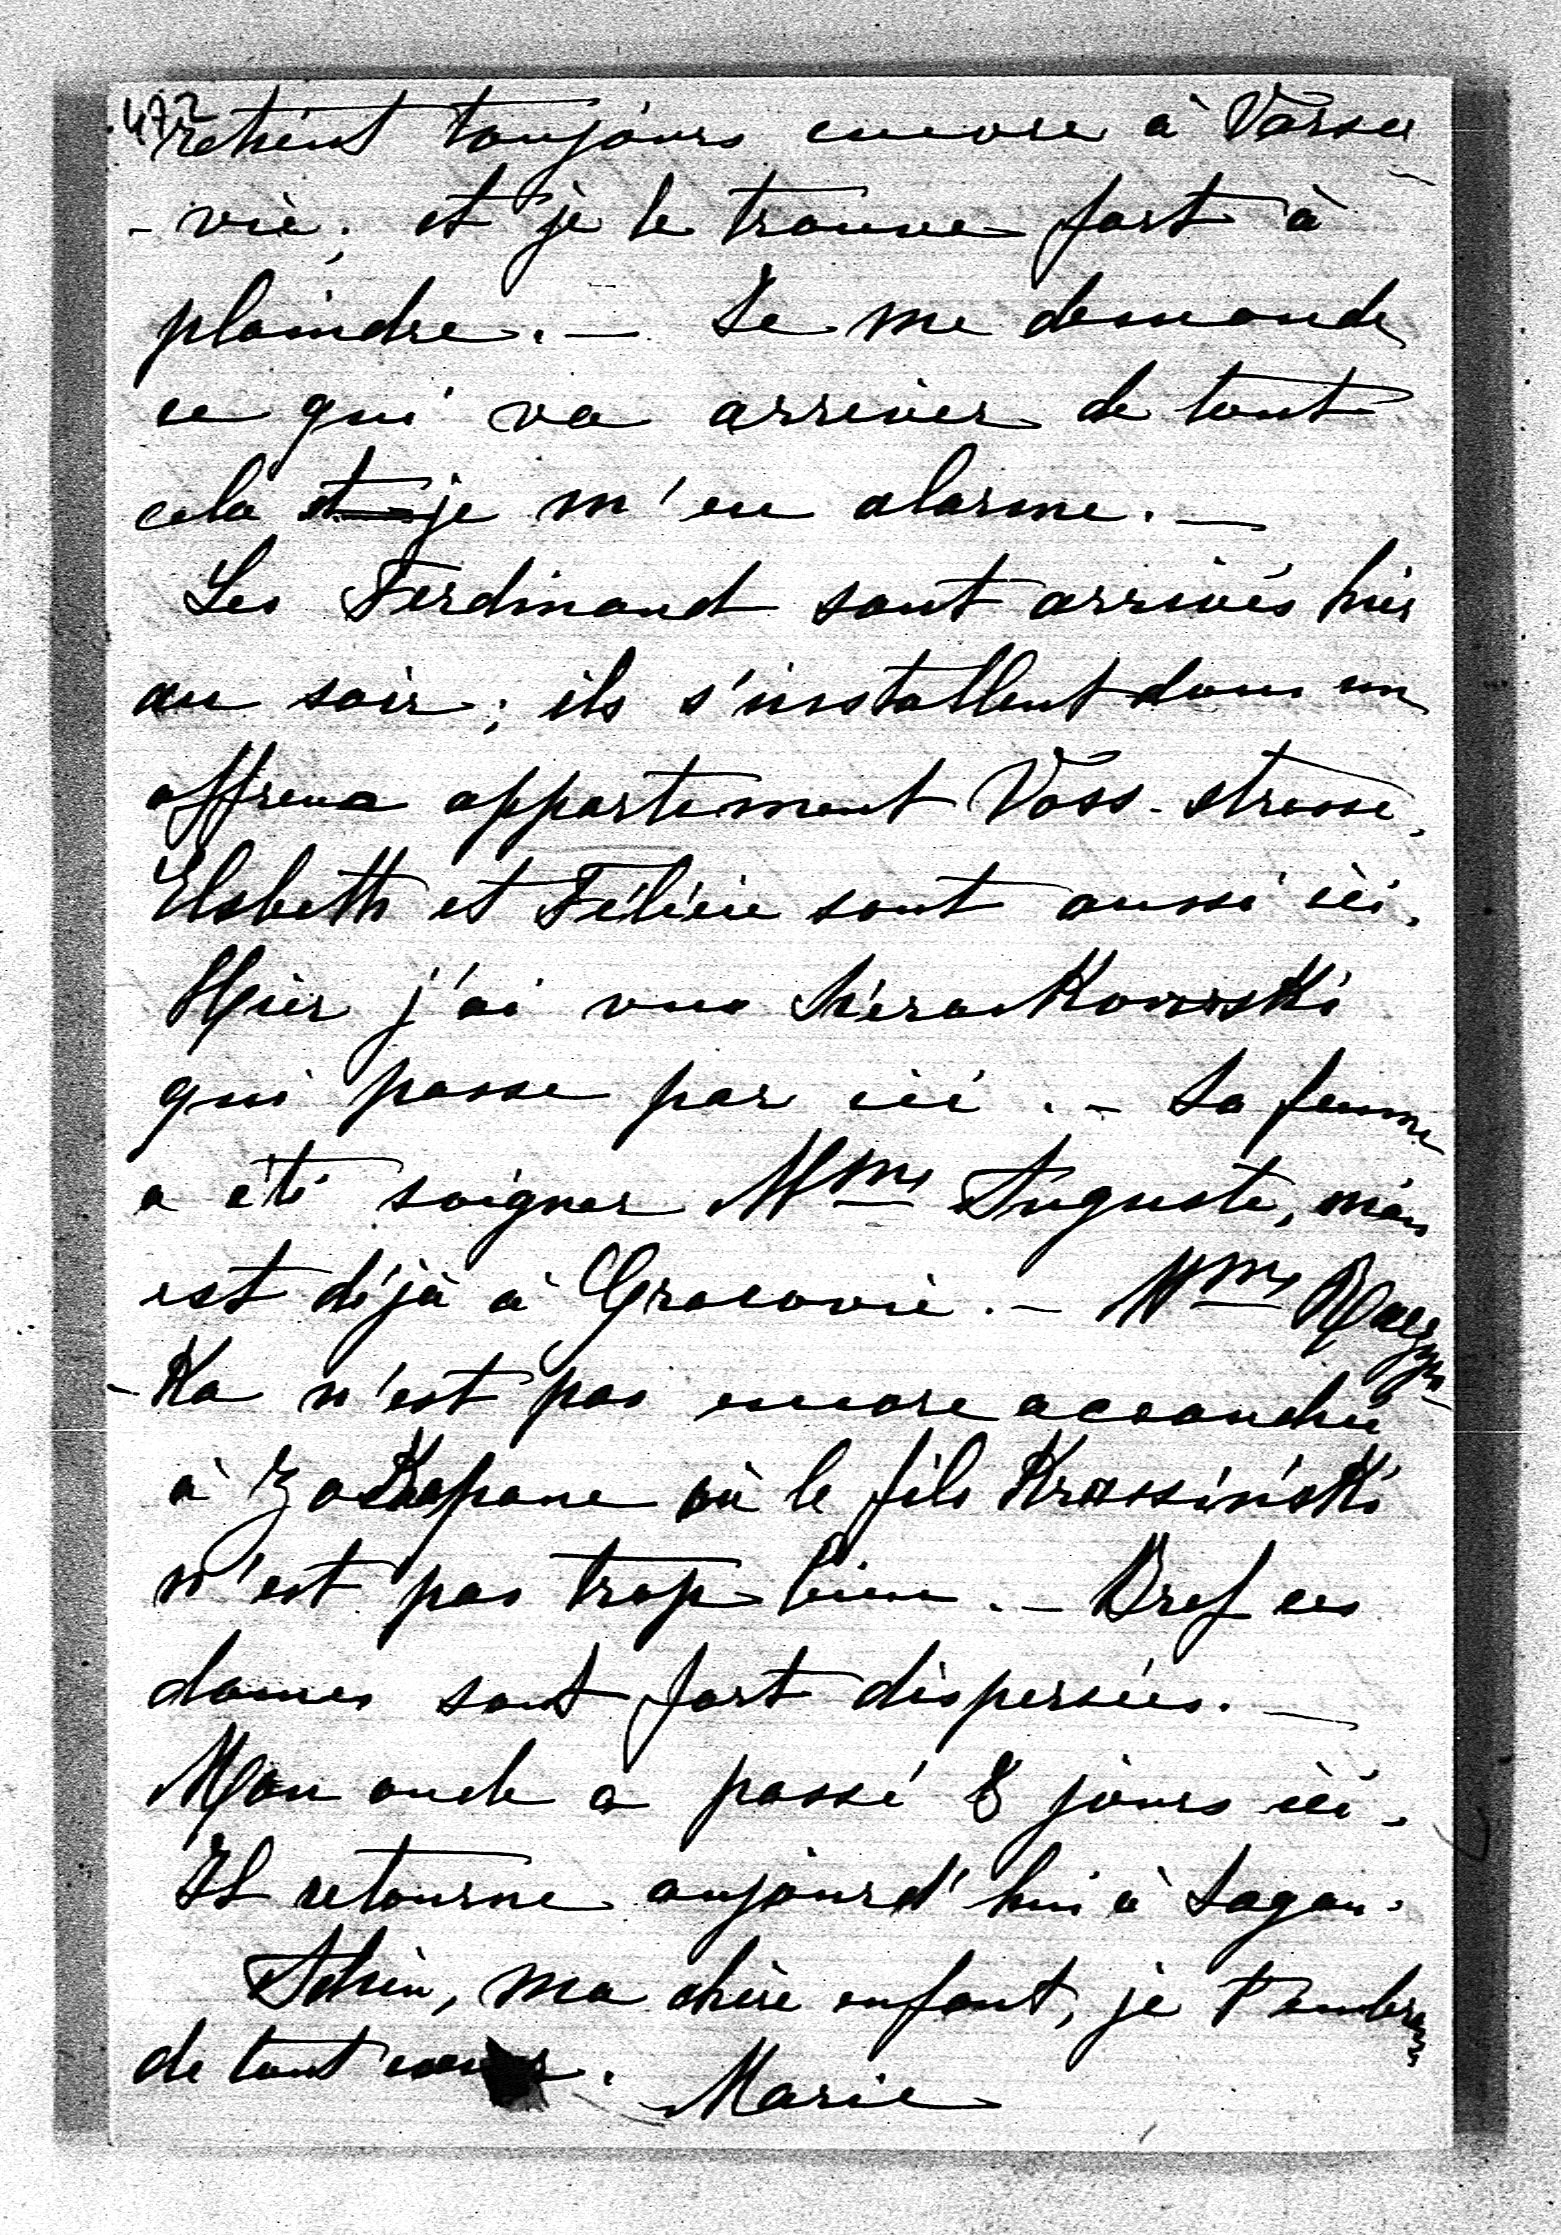 472
retient toujours encore à Varso
-vie; et je le trouve fort à
plaindre. — Je me demande
ce qui va arriver de tout
cela et je m'en alarme. —
Les Ferdinand sont arrivés hier
au soir; ils s'installent dans un
affreux appartement Voss-strasse,
Elsbeth et Félicie sont aussi ici.
Hier j'ai vu Sierakowski
qui passe par ici. — Sa femme
a été soigner Mme Auguste, mais
est déjà à Cracovie. — Mme
-ka n'est pas encore accouchée
à Zakopane où le fils Krasiński
n'est pas trop bien. — Bref ces
dames sont fort dispersées. —
Mon oncle a passé 8 jours ici.
Il retourne aujourd'hui à Sagan.
Adieu, ma chère enfant, je t'embrasse
de tout coeur.
Marie